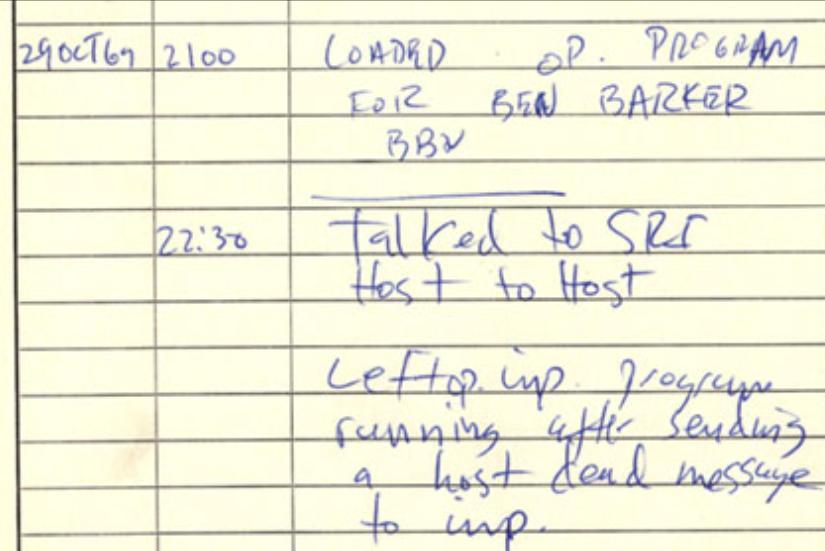 29OCT69 2100 LOADED OP. PROGRAM
FOR BEN BARKER
BBN
22:30 Talked to SRI
Host to Host
Left op. imp. program
running after sending
a host dead message
to imp.